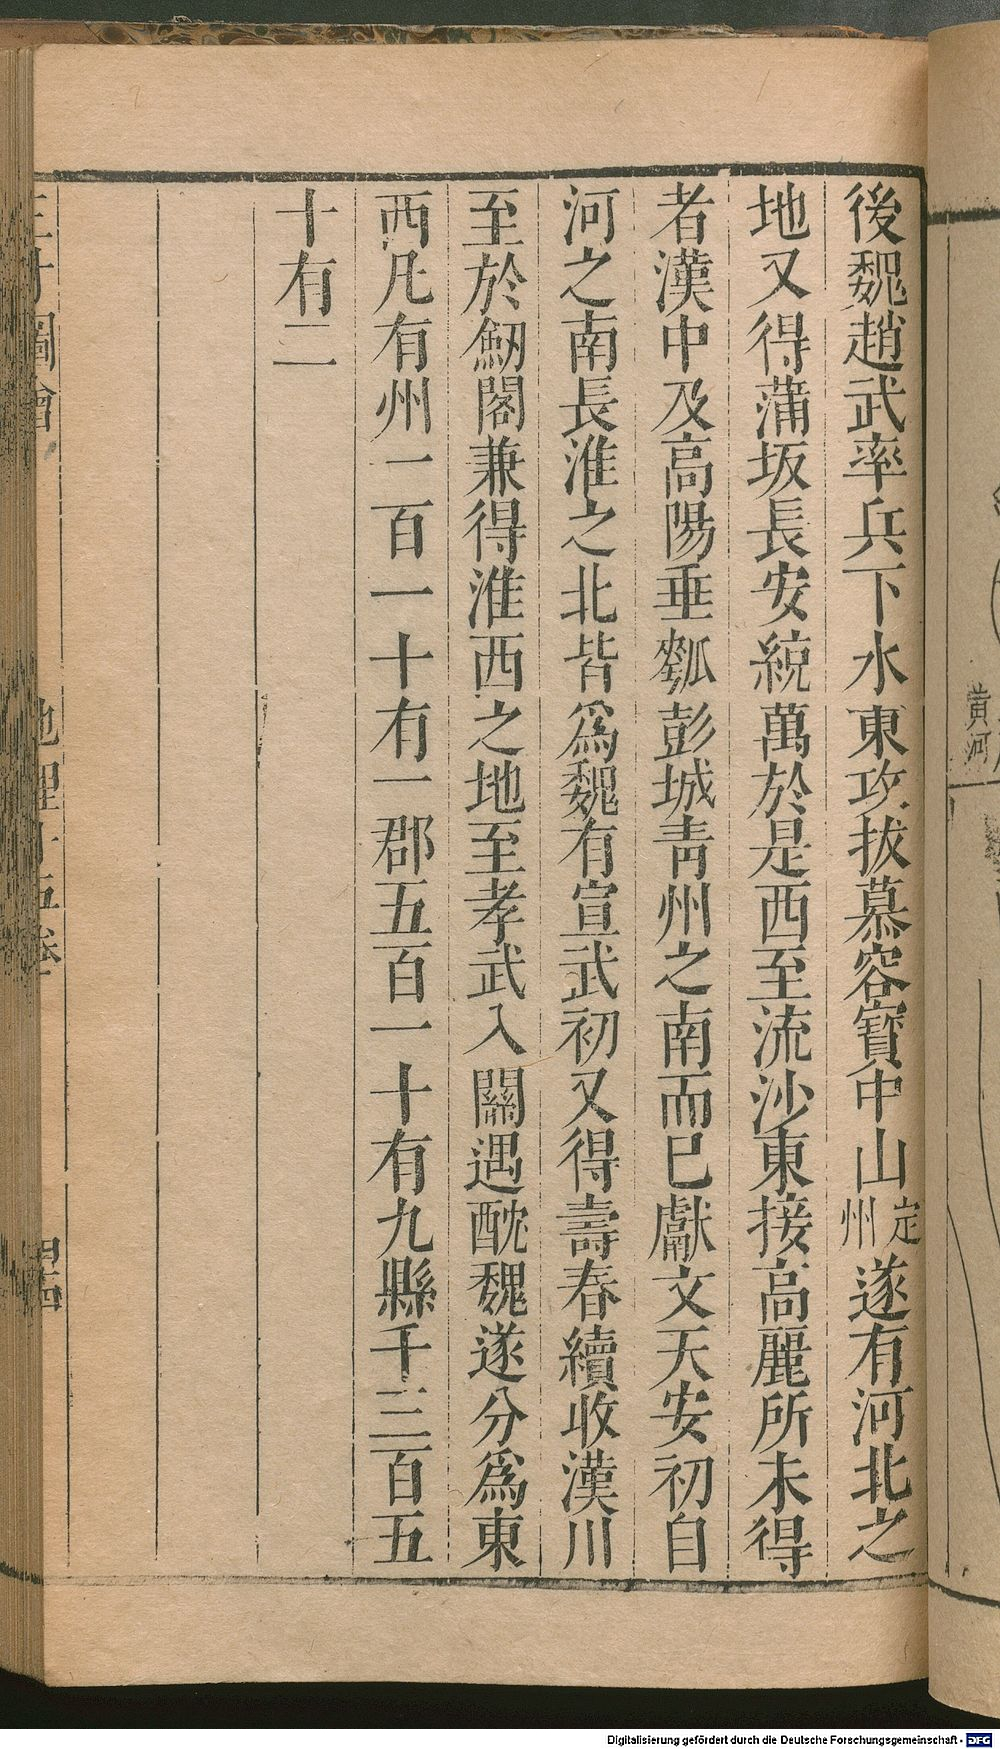 後魏趙武率兵下水東攻拔慕容寶中山定州遂有河北之
地又得蒲坂長安統萬於是西至流沙東接高麗所未得
者漢中及高陽垂瓠彭城青州之南而巳獻文天安初自
河之南長淮之北皆爲魏有宣武初又得壽春續收漢川
至於劒閣兼得淮西之地至孝武入關遇酖魏遂分爲東
西凡有州一百一十有一郡五百一十有九縣千三百五
十有二
三才圖會
地理十五卷
黃河
Digitalisierung gefördert durch die Deutsche Forschungsgemeinschaft - DFG